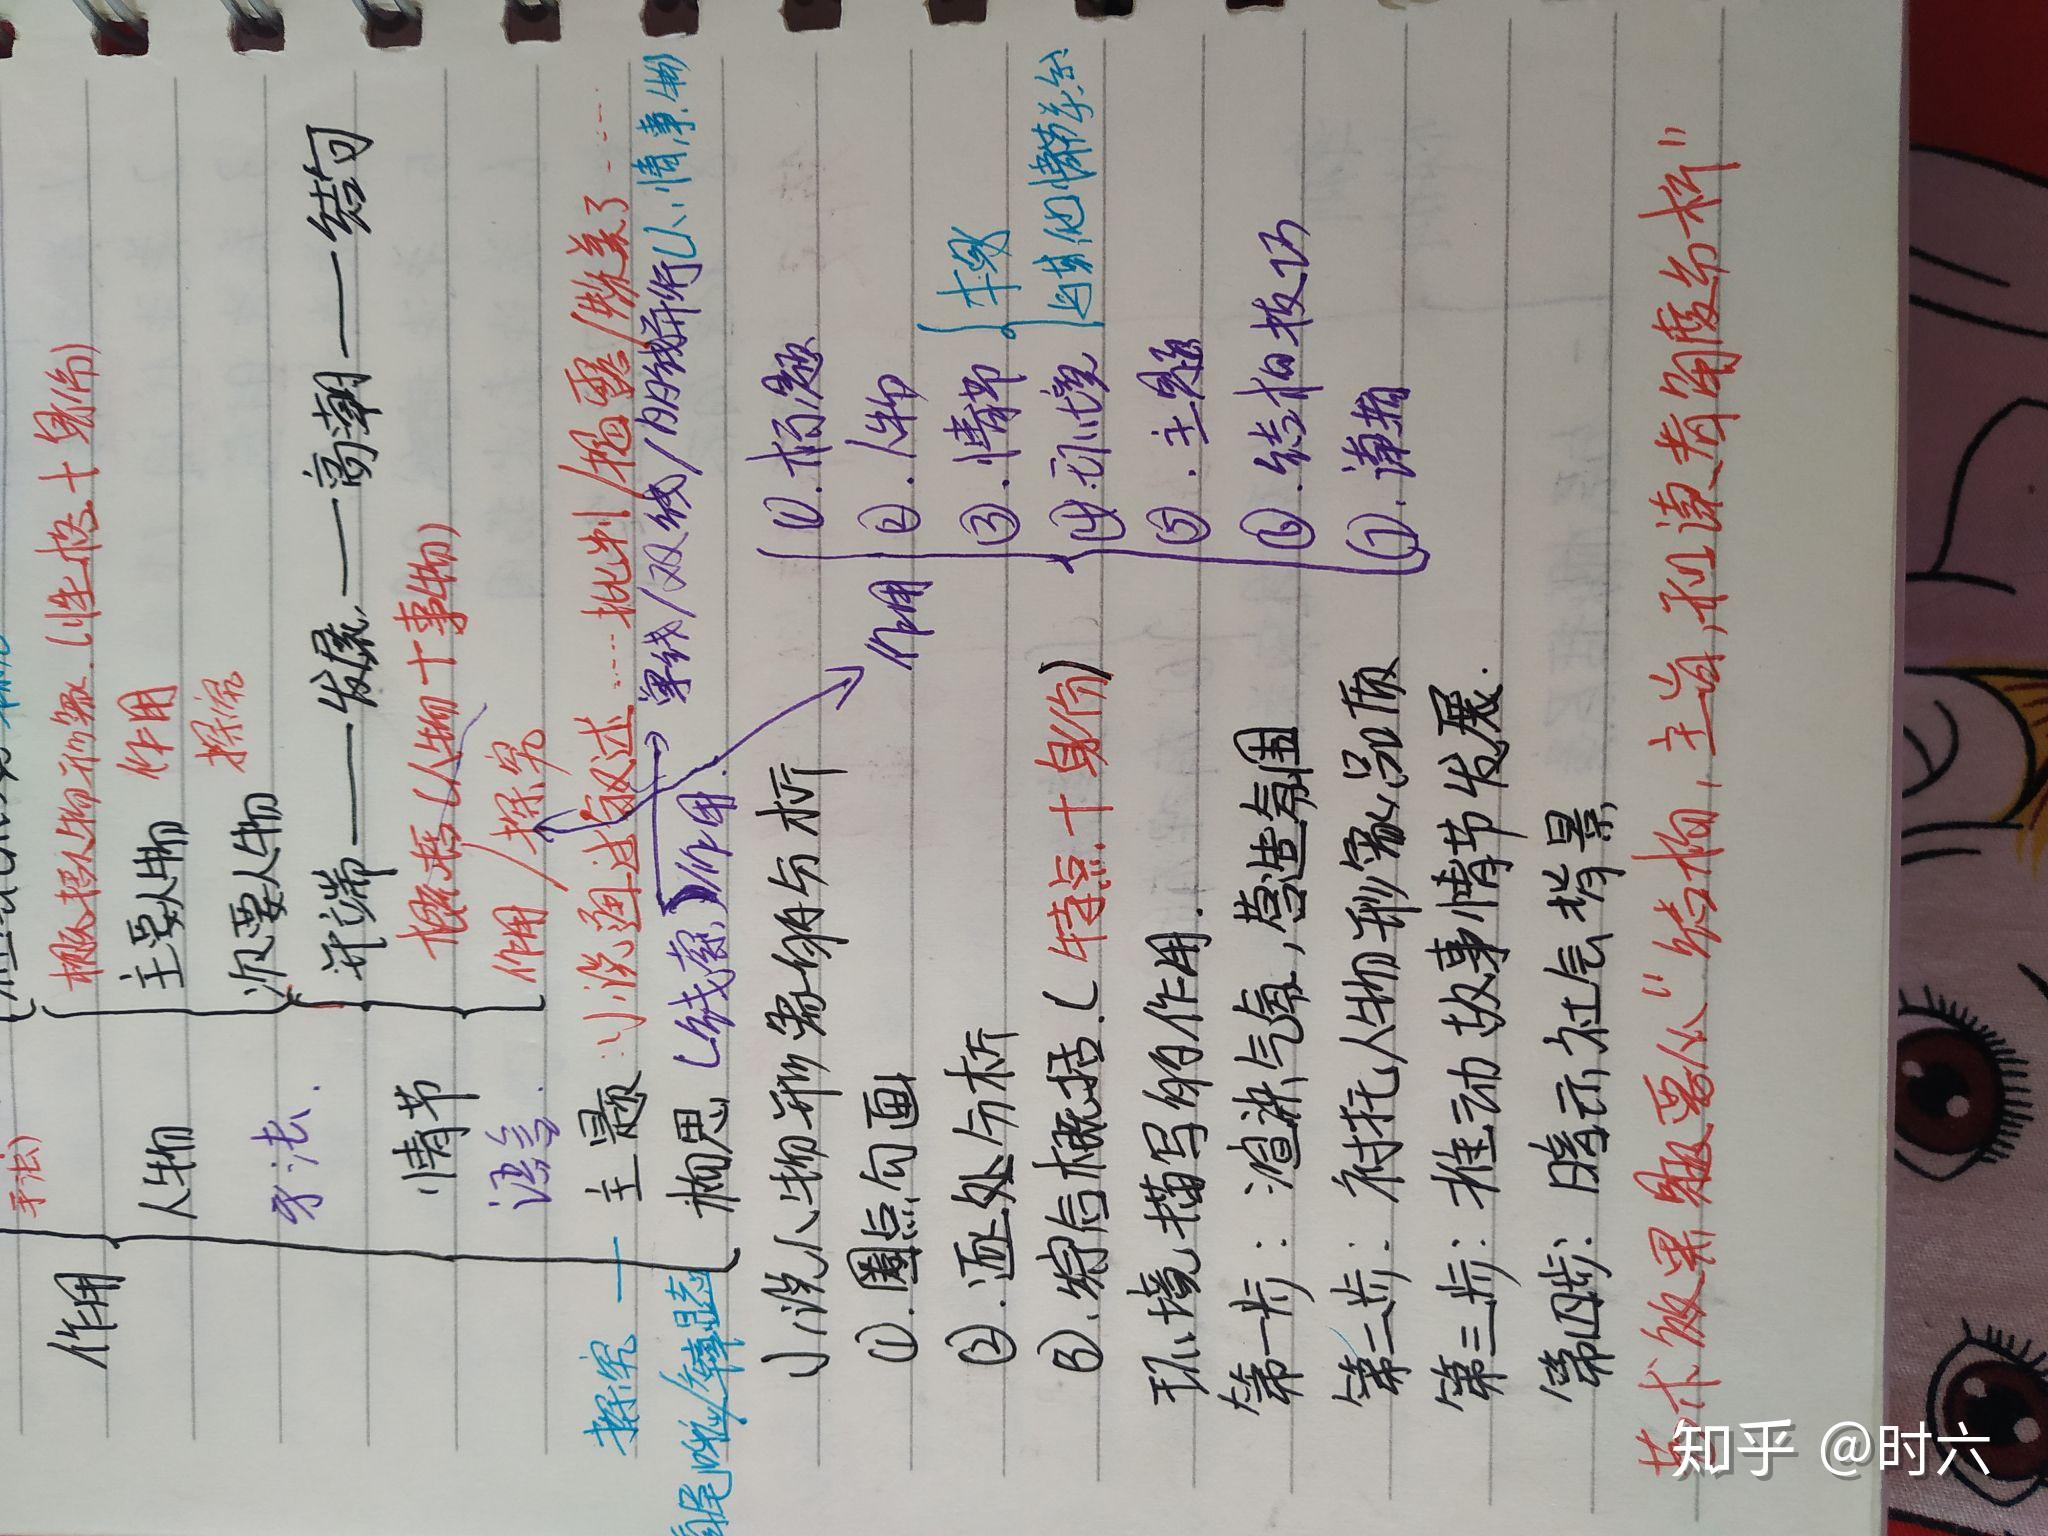 手法)
作用
概括人物形象.(性格+身份)
人物
主要人物 作用
手法.
次要人物 探究
开端——发展——高潮——结局
情节
概括(人物+事物)
语言.
作用/探究
探究—主题:小说通过叙述……批判/揭露/赞美了……
构思(线索)作用. 单线/双线/明暗线并行(人、情、事、物)
小说人物形象的分析
①.圈点勾画
②.逐处分析
③.综合概括.(特点+身份)
作用
①.标题
②.人物
③.情节
本段
与其他情节关系
④.环境
⑤.主题
⑥.结构技巧
⑦.读者
环境描写的作用.
第一步:渲染气氛,营造氛围
第二步:衬托人物形象、品质
第三步:推动故事情节发展.
第四步:暗示社会背景
艺术效果题要从"结构,主旨,和读者角度分析"
知乎 @时六